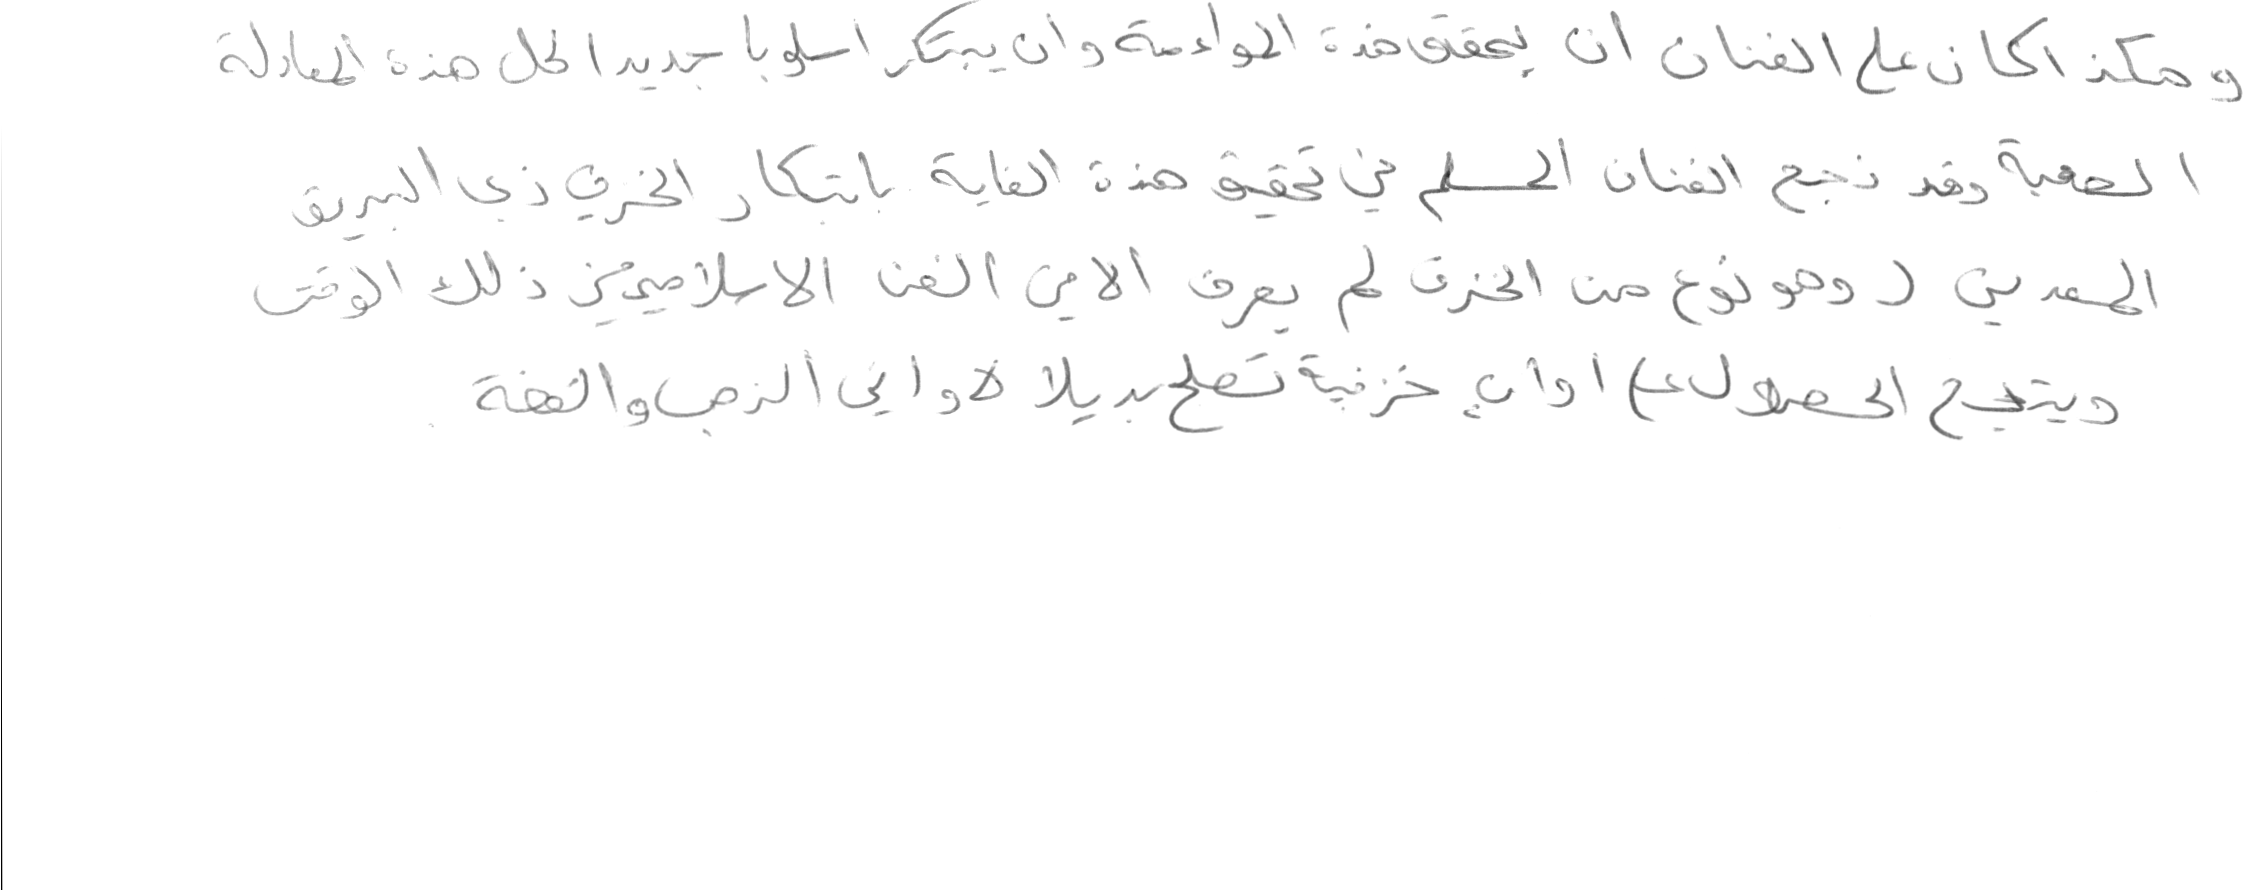 وهكذا كان على الفنان ان يحقق هذة المواءمة وان يبتكر اسلوبا جديدا لحل هذه المعادلة
الصعبة وقد نجح الفنان المسلم في تحقيق هذة الغاية بابتكار الخزف ذي البريق
المعدني ( وهو نوع من الخزف لم يعرف الا في الفن الاسلامي في ذلك الوقت
ويتيح الحصول على ) اوان خزفية تصلح بديلا لاواني الذهب والفضة